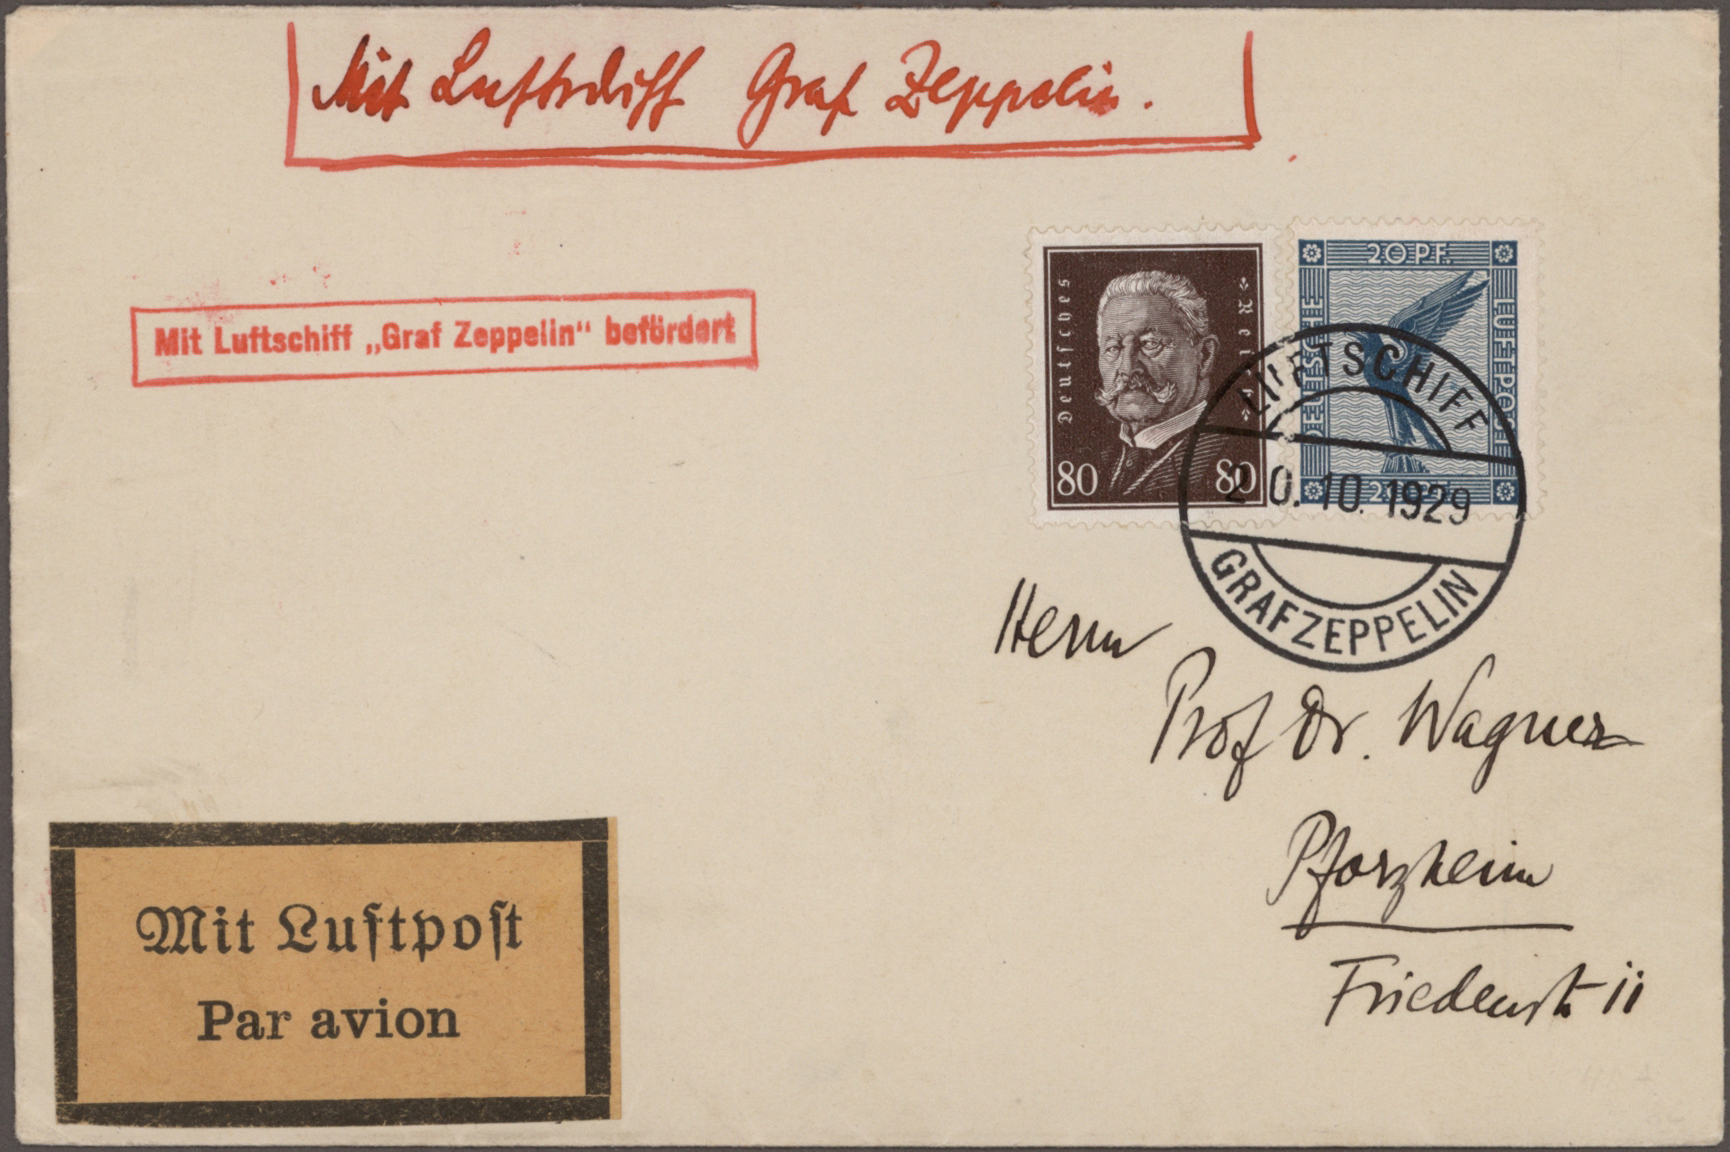 Mit Luftschiff Graf Zeppelin.
Mit Luftschiff „Graf Zeppelin“ befördert
Deutsches Reich
80 80
20 PF.
DEUTSCHE LUFTPOST
20 PF.
LUFTSCHIFF
20.10.1929
GRAF ZEPPELIN
Herrn
Prof Dr. Wagner
Pforzheim
Friedenstr 11
Mit Luftpoſt
Par avion